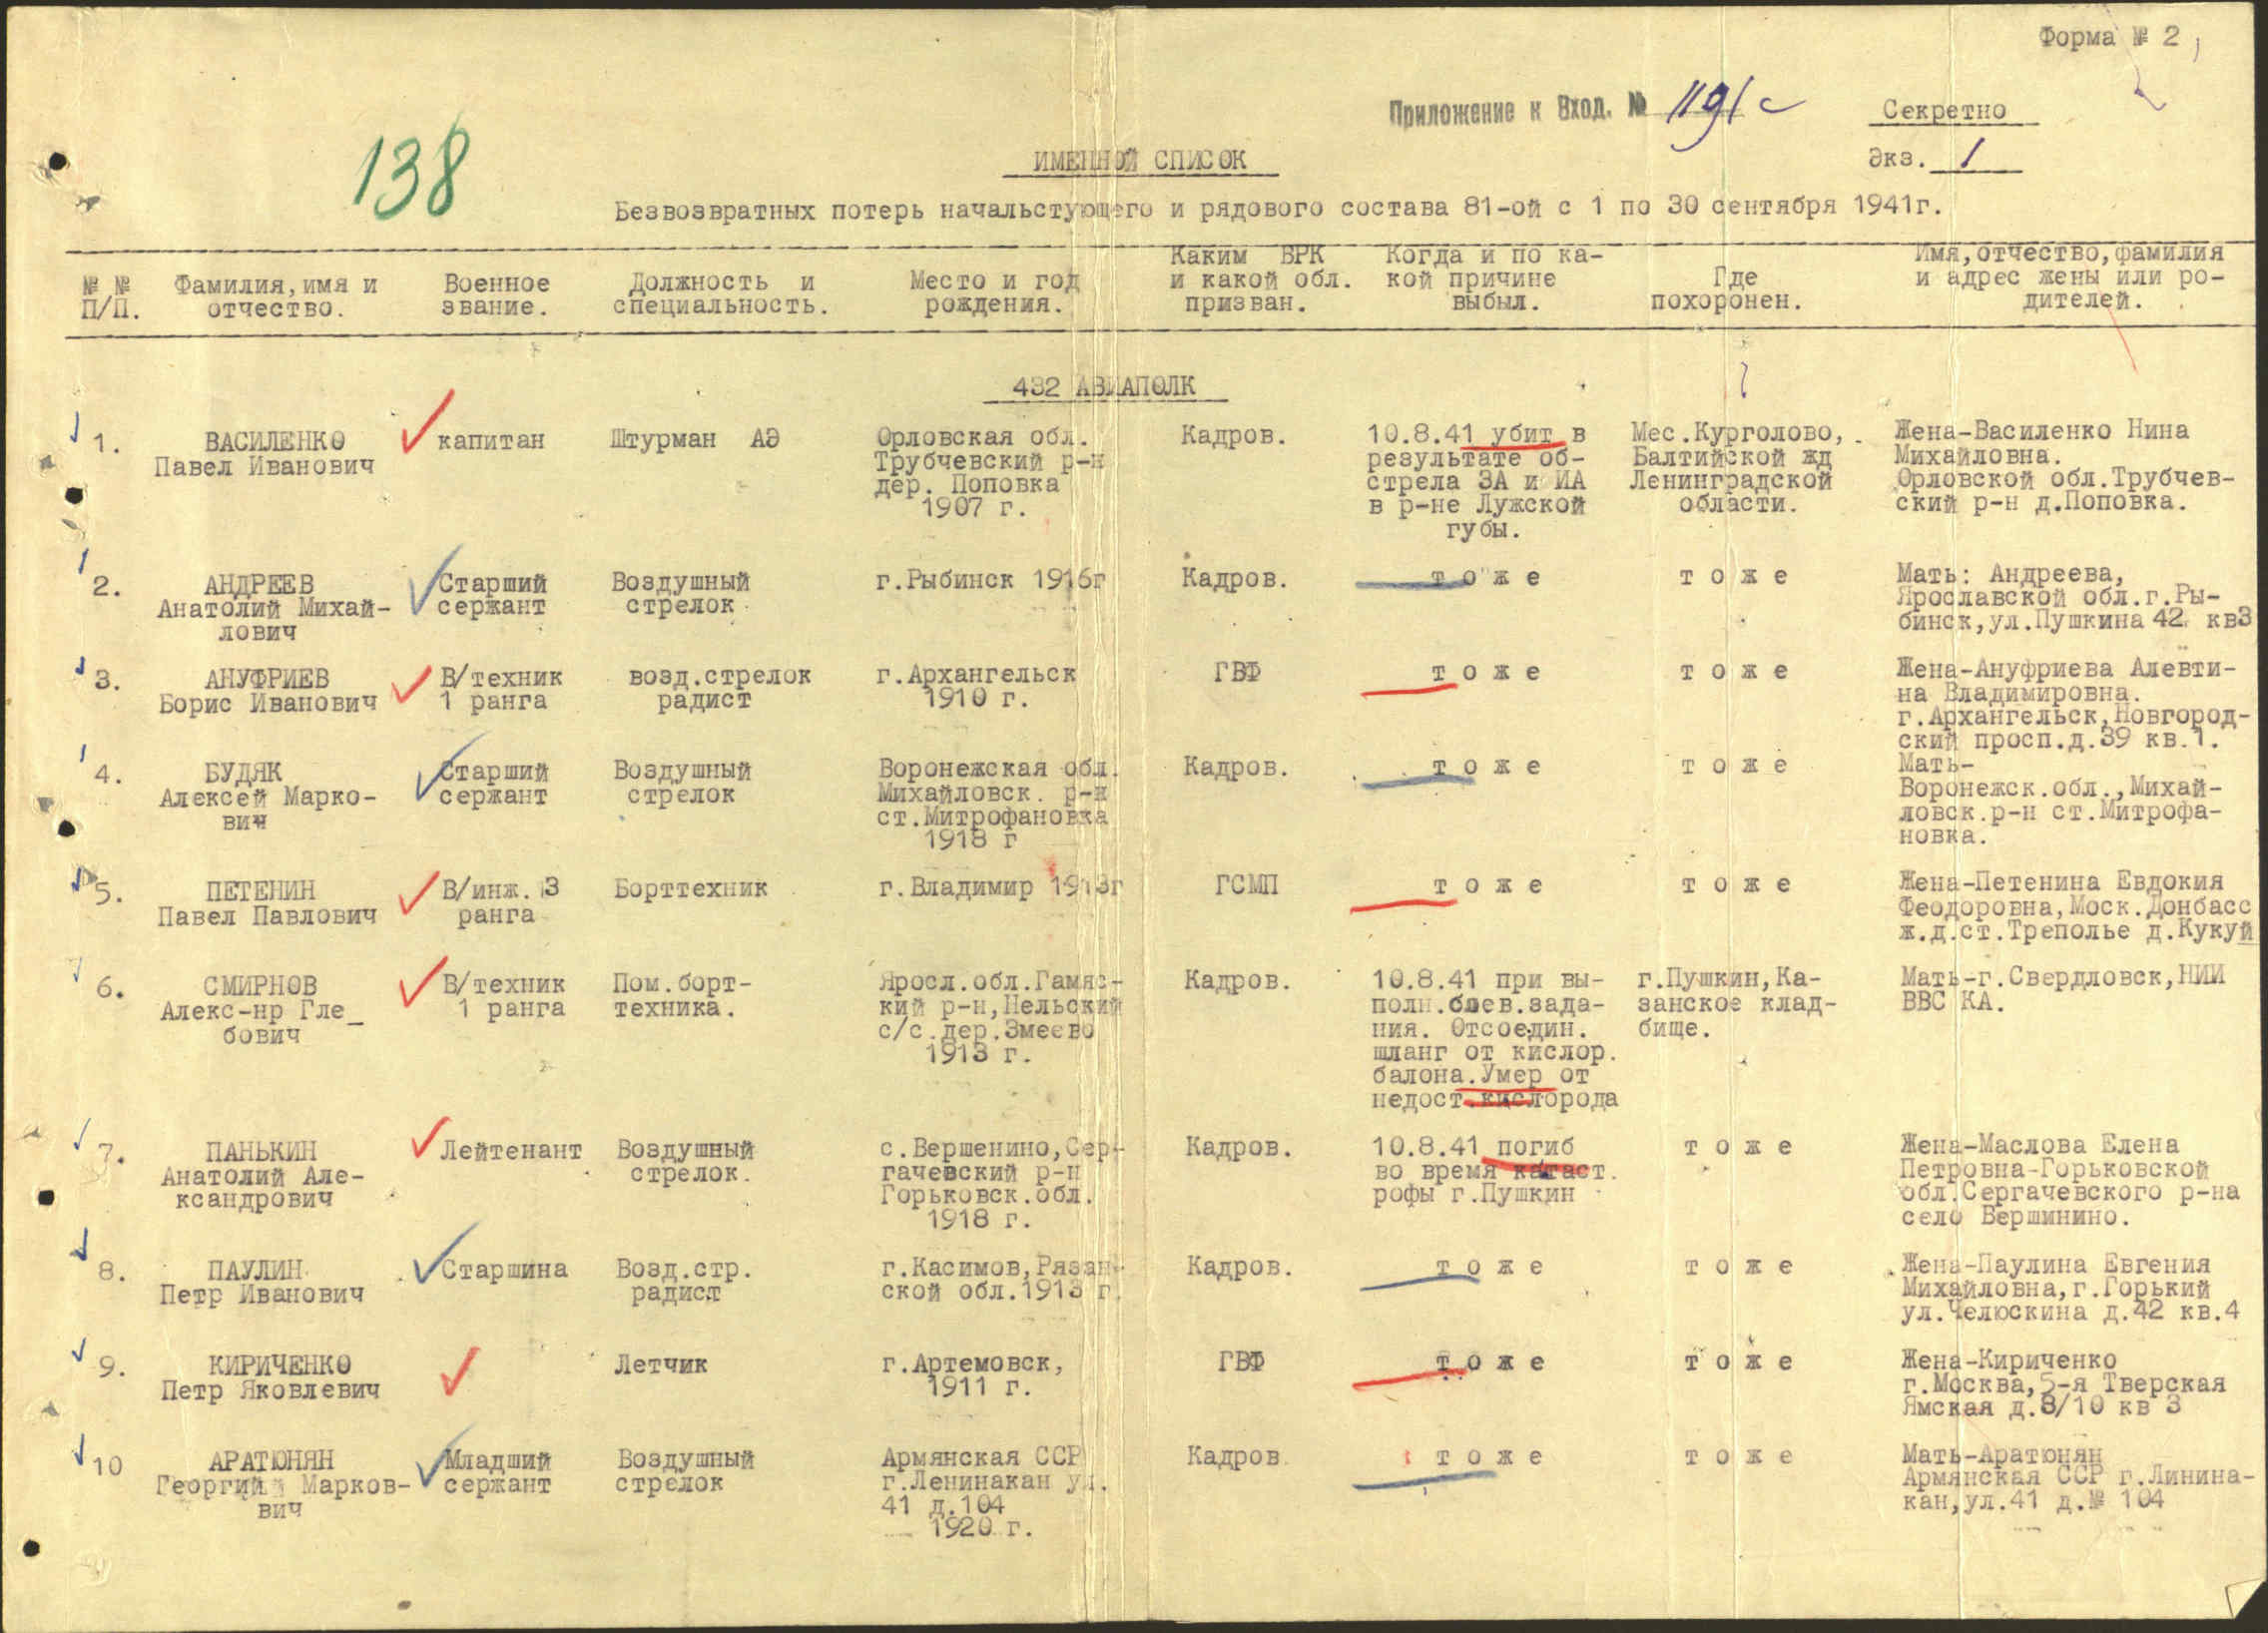 Форма № 2
Приложение к Вход. № 1191с
Секретно
Экз. 1
138
ИМЕННОЙ СПИСОК
Безвозвратных потерь начальстующего и рядового состава 81-ой с 1 по 30 сентября 1941г.
№ № П/П.
Фамилия, имя и
отчество.
Военное
звание.
Должность и
специальность.
Место и год
рождения.
Каким ВРК
и какой обл.
призван.
Когда и по ка-
кой причине
выбыл.
Где
похоронен.
Имя, отчество, фамилия
и адрес жены или ро-
дителей.
432 АВИАПОЛК
1.
ВАСИЛЕНКО
Павел Иванович
капитан
Штурман АЭ
Орловская обл.
Трубчевский р-н
дер. Поповка
1907 г.
Кадров.
10.8.41 убит в
результате об-
стрела ЗА и ИА
в р-не Лужской
губы.
Мес.Курголово,
Балтийской жд
Ленинградской
области.
Жена-Василенко Нина
Михайловна.
Орловской обл.Трубчев-
ский р-н д.Поповка.
2.
АНДРЕЕВ
Анатолий Михай-
лович
Старший
сержант
Воздушный
стрелок
г.Рыбинск 1916г
Кадров.
т о ж е
т о ж е
Мать: Андреева,
Ярославской обл.г.Ры-
бинск,ул.Пушкина 42 кв3
3.
АНУФРИЕВ
Борис Иванович
В/техник
1 ранга
возд.стрелок
радист
г.Архангельск
1910 г.
ГВФ
т о ж е
т о ж е
Жена-Ануфриева Алевти-
на Владимировна.
г.Архангельск,Новгород-
ский просп.д.39 кв.1.
4.
БУДЯК
Алексей Марко-
вич
Старший
сержант
Воздушный
стрелок
Воронежская обл.
Михайловск. р-н
ст.Митрофановка
1918 г
Кадров.
т о ж е
т о ж е
Мать-
Воронежск.обл.,Михай-
ловск.р-н ст.Митрофа-
новка.
5.
ПЕТЕНИН
Павел Павлович
В/инж. 3
ранга
Борттехник
г.Владимир 1913г
ГСМП
т о ж е
т о ж е
Жена-Петенина Евдокия
Феодоровна,Моск.Донбасс
ж.д.ст.Треполье д.Кукуй
6.
СМИРНОВ
Алекс-нр Гле_
бович
В/техник
1 ранга
Пом.борт-
техника.
Яросл.обл.Гамяс-
кий р-н,Нельский
с/с.дер.Змеево
1913 г.
Кадров.
10.8.41 при вы-
полн.боев.зада-
ния. Отсоедин.
шланг от кислор.
балона.Умер от
недост.кислорода
г.Пушкин,Ка-
занское клад-
бище.
Мать-г.Свердловск,НИИ
ВВС КА.
7.
ПАНЬКИН
Анатолий Але-
ксандрович
Лейтенант
Воздушный
стрелок.
с.Вершенино,Сер-
гачевский р-н
Горьковск.обл.
1918 г.
Кадров.
10.8.41 погиб
во время катаст.
рофы г.Пушкин
т о ж е
Жена-Маслова Елена
Петровна-Горьковской
обл.Сергачевского р-на
село Вершинино.
8.
ПАУЛИН
Петр Иванович
Старшина
Возд.стр.
радист
г.Касимов,Рязан-
ской обл.1913 г.
Кадров.
т о ж е
т о ж е
Жена-Паулина Евгения
Михайловна,г.Горький
ул.Челюскина д.42 кв.4
9.
КИРИЧЕНКО
Петр Яковлевич
Летчик
г.Артемовск,
1911 г.
ГВФ
т о ж е
т о ж е
Жена-Кириченко
г.Москва,5-я Тверская
Ямская д.8/10 кв 3
10
АРАТЮНЯН
Георгий Марков-
вич
Младший
сержант
Воздушный
стрелок
Армянская ССР
г.Ленинакан ул.
41 д.104
1920 г.
Кадров
т о ж е
т о ж е
Мать-Аратюнян
Армянская ССР г.Линина-
кан,ул.41 д.№ 104